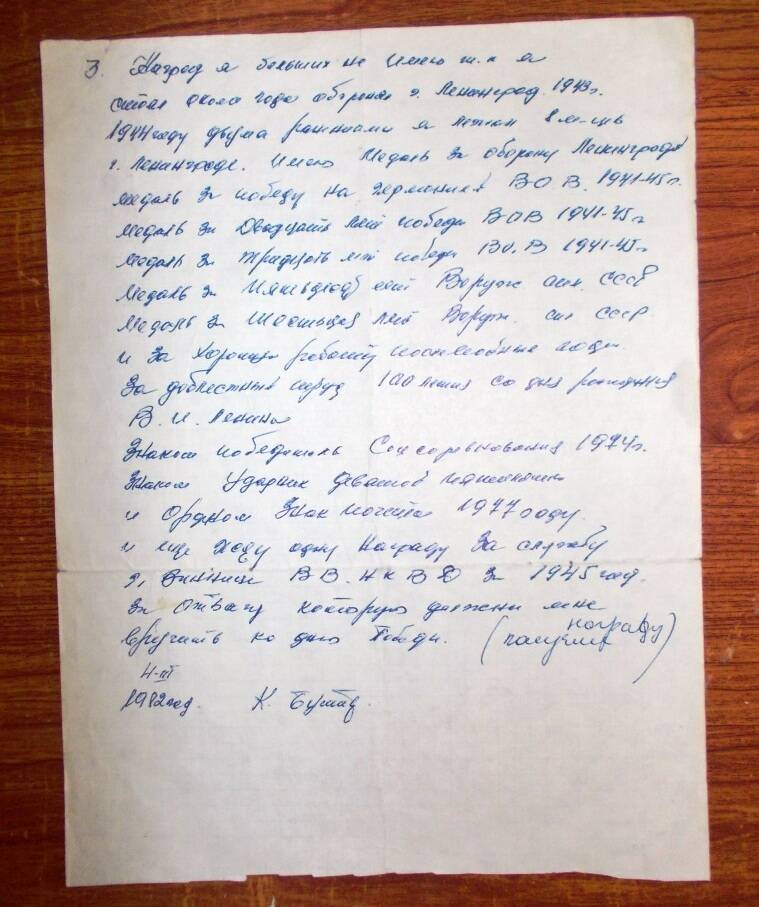 3. Наград я больших не имею т.к я
стоял около года обороне г. Ленинград. 1943г.
1944 году двумя ранениями я лежал 8 м-цев
г. Ленинграде. имею Медаль За оборону Ленинграда
медаль за победу на Германией В.О.В. 1941-45г.
медаль за Двадцать лет победы ВОВ 1941-45г
медаль за тридцать лет победы ВО.В 1941-45г
Медаль за Пятьдесят лет Воруж сил. СССР
Медаль за Шестьдеся лет Воруж. сил СССР.
и за хорошую работу послевоенные годы.
За доблестный труд 100 летия со дня рождения
В. И. Ленина
Знаком победитель Соцсоревнования 1974г.
Знаком Ударник девятой пятилетки
и Орденом Знак почёта 1977 году.
и еще жду одну Награду За службу
г. Винница ВВ.НКВД за 1945 год.
За отвагу которую должны мне
вручить ко дню Победы. (получил награду)
4-III
1982 год. К.